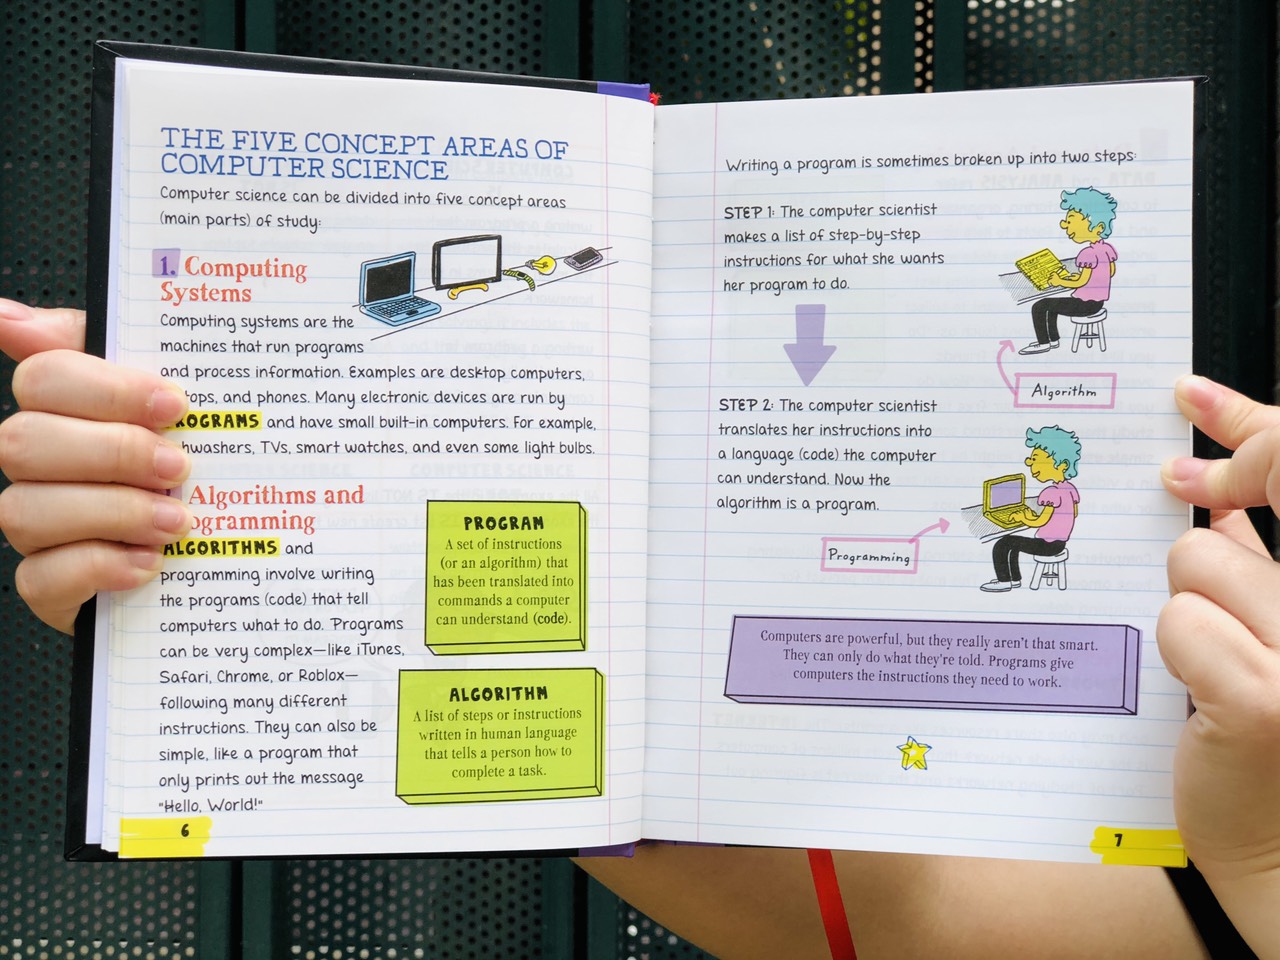 THE FIVE CONCEPT AREAS OF
COMPUTER SCIENCE
Computer science can be divided into five concept areas
(main parts) of study:
1. Computing
Systems
Computing systems are the
machines that run programs
and process information. Examples are desktop computers,
tops, and phones. Many electronic devices are run by
ROGRAMS and have small built-in computers. For example,
hwashers, TVs, smart watches, and even some light bulbs.
Algorithms and
ogramming
ALGORITHMS and
programming involve writing
the programs (code) that tell
computers what to do. Programs
can be very complex—like iTunes,
Safari, Chrome, or Roblox—
following many different
instructions. They can also be
simple, like a program that
only prints out the message
"Hello, World!"
PROGRAM
A set of instructions
(or an algorithm) that
has been translated into
commands a computer
can understand (code).
ALGORITHM
A list of steps or instructions
written in human language
that tells a person how to
complete a task.
6
Writing a program is sometimes broken up into two steps:
STEP 1: The computer scientist
makes a list of step-by-step
instructions for what she wants
her program to do.
Algorithm
STEP 2: The computer scientist
translates her instructions into
a language (code) the computer
can understand. Now the
algorithm is a program.
Programming
Computers are powerful, but they really aren't that smart.
They can only do what they're told. Programs give
computers the instructions they need to work.
7